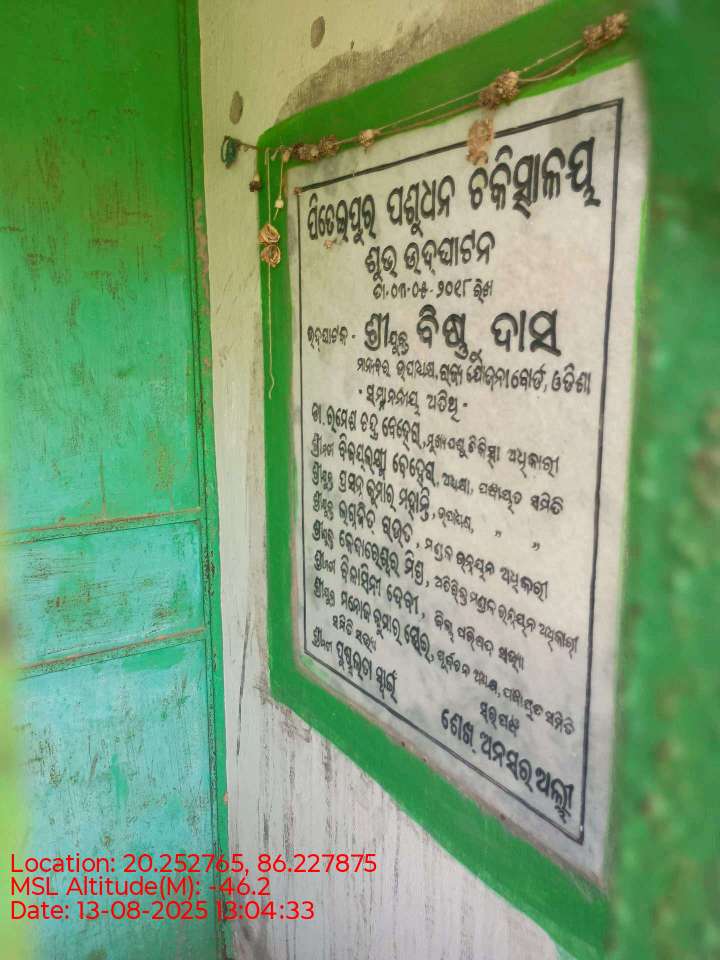 ପିତେଇପୁର ପଶୁଧନ ଚିକିତ୍ସାଳୟ
ଶୁଭ ଉଦ୍‌ଘାଟନ
ତା.୦୩.୦୫-୨୦୧୮ ରିଖ
ଉଦ୍‌ଘାଟକ - ଶ୍ରୀଯୁକ୍ତ ବିଷ୍ଣୁ ଦାସ
ମାନ୍ୟବର ଉପାଧ୍ୟକ୍ଷ, ରାଜ୍ୟ ଯୋଜନା ବୋର୍ଡ, ଓଡିଶା
- ସମ୍ମାନନୀୟ ଅତିଥି -
ଡା. ରମେଶ ଚନ୍ଦ୍ର ବେହେରା, ମୁଖ୍ୟ ପଶୁ ଚିକିତ୍ସା ଅଧିକାରୀ
ଶ୍ରୀମତୀ ବିଜୟଲକ୍ଷ୍ମୀ ବେହେରା, ଅଧ୍ୟକ୍ଷା, ପଞ୍ଚାୟତ ସମିତି
ଶ୍ରୀଯୁକ୍ତ ପ୍ରସନ୍ନ କୁମାର ମହାନ୍ତି, ଉପାଧ୍ୟକ୍ଷ, " "
ଶ୍ରୀଯୁକ୍ତ ରାଉତ, ମଣ୍ଡଳ ଉନ୍ନୟନ ଅଧିକାରୀ
ଶ୍ରୀଯୁକ୍ତ କେଦାରେଶ୍ୱର ମିଶ୍ର, ଅତିରିକ୍ତ ମଣ୍ଡଳ ଉନ୍ନୟନ ଅଧିକାରୀ
ଶ୍ରୀମତୀ ବିଳାସିନୀ ଦେବୀ, ଜିଲ୍ଲା ପରିଷଦ ସଭ୍ୟା
ଶ୍ରୀଯୁକ୍ତ ମନୋଜ କୁମାର ସ୍ୱେନ୍, ପୂର୍ବତନ ଅଧ୍ୟକ୍ଷ, ପଞ୍ଚାୟତ ସମିତି
ସମିତି ସଭ୍ୟା
ଶ୍ରୀମତୀ ପୁଷ୍ପଲତା ସ୍ୱାଇଁ
ସରପଞ୍ଚ
ଶେଖ୍ ଅନସର ଅଲ୍ଲୀ
Location: 20.252765, 86.227875
MSL Altitude(M): -46.2
Date: 13-08-2025 13:04:33